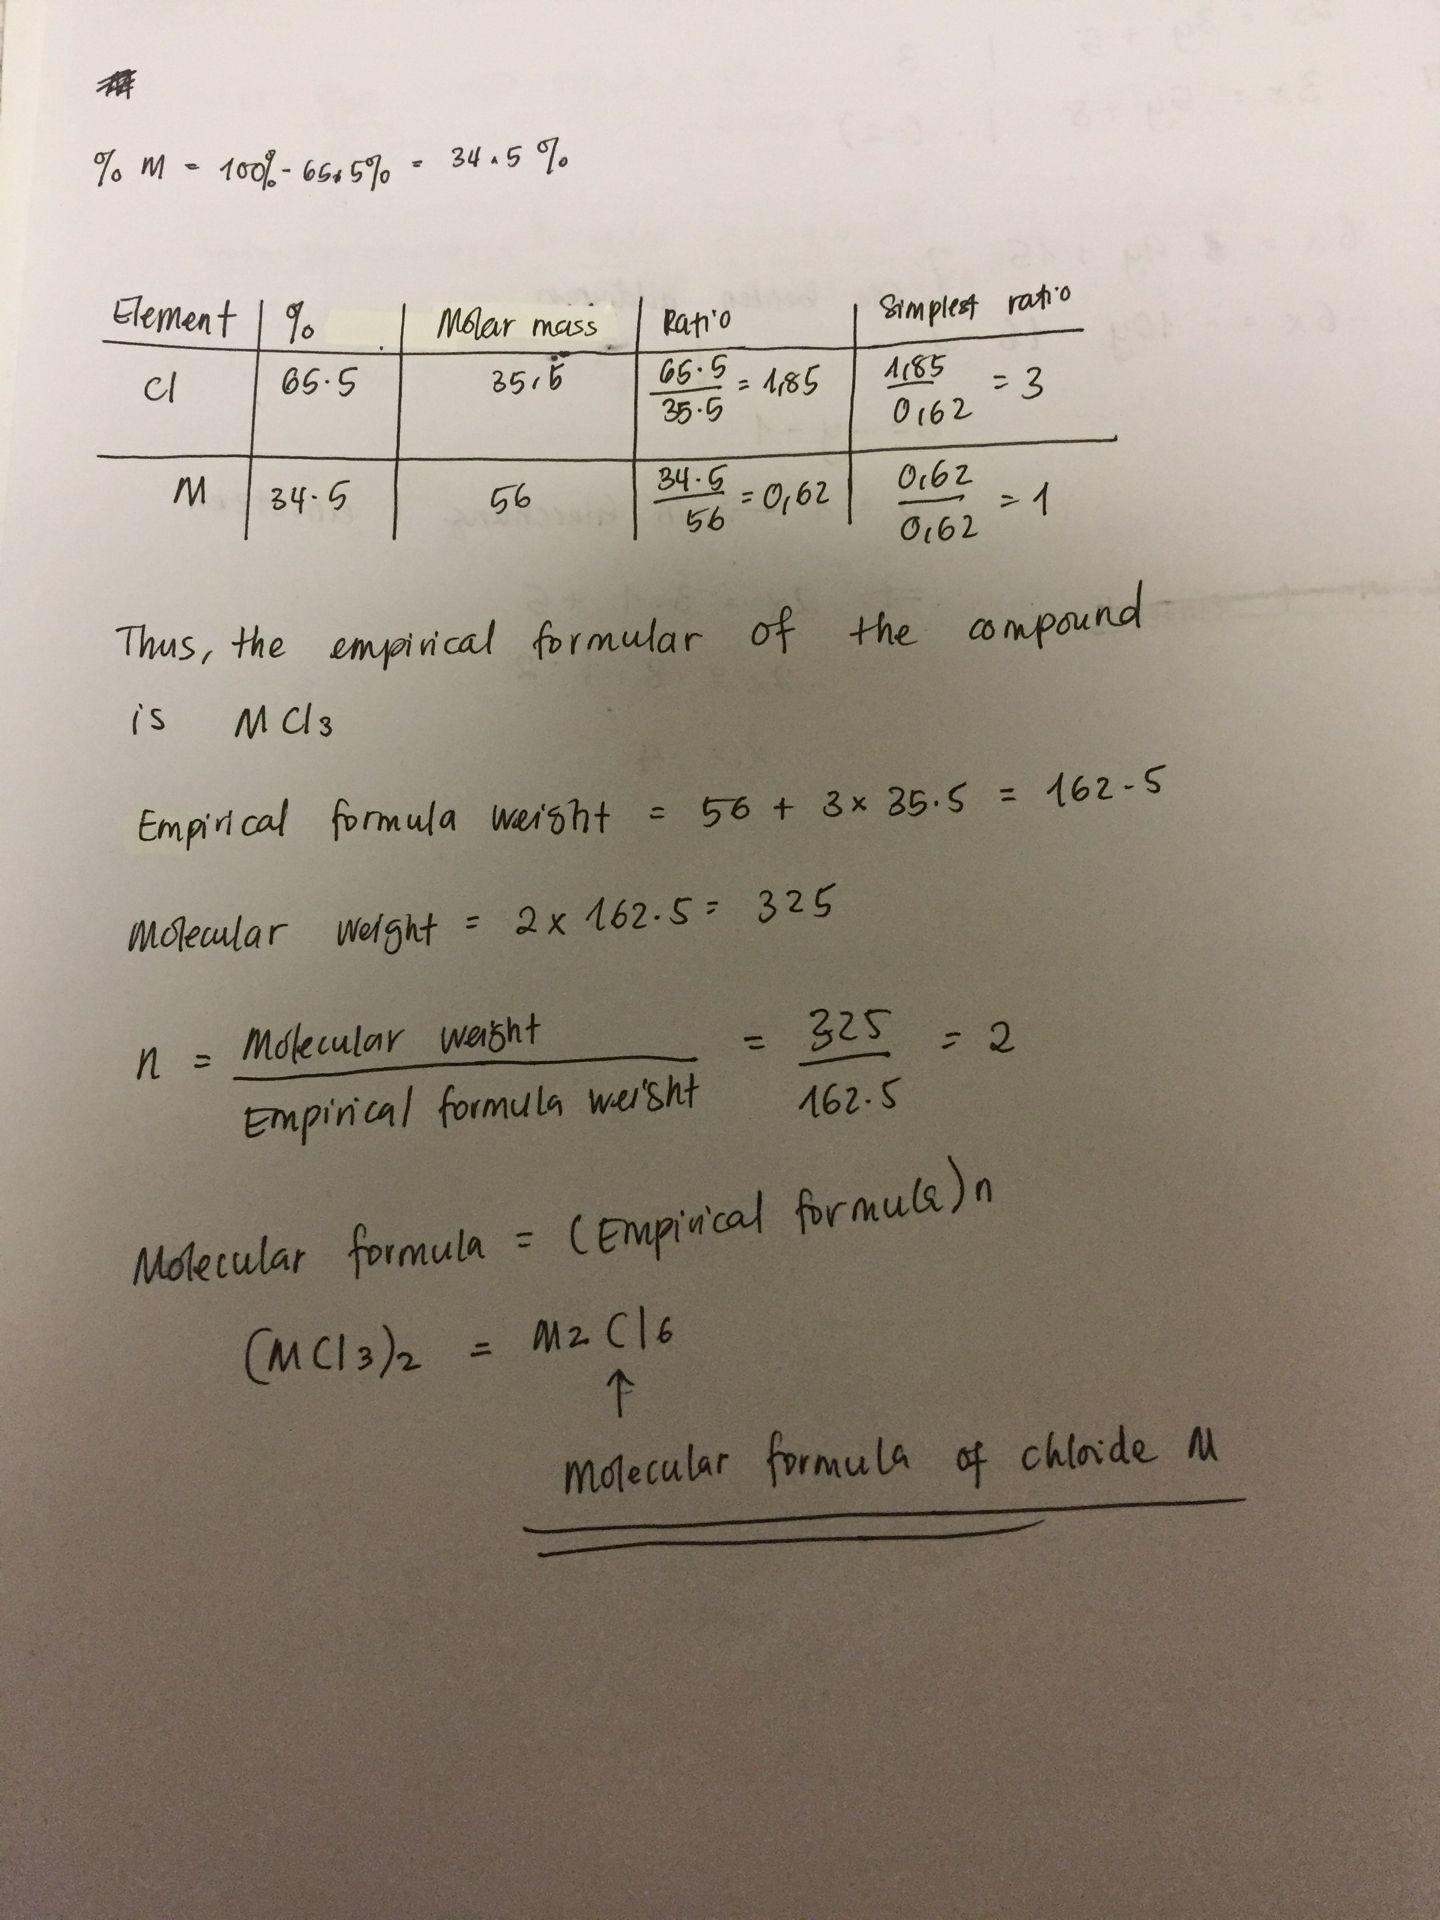 % M = 100% - 65.5% = 34.5 %
Element | % | Molar mass | Ratio | Simplest ratio
Cl | 65.5 | 35,5 | 65.5/35.5 = 1,85 | 1,85/0,62 = 3
M | 34.5 | 56 | 34.5/56 = 0,62 | 0,62/0,62 = 1
Thus, the empirical formular of the compound
is MCl3
Empirical formula weight = 56 + 3 x 35.5 = 162.5
Molecular weight = 2 x 162.5 = 325
n = Molecular weight / Empirical formula weight = 325/162.5 = 2
Molecular formula = (Empirical formula)n
(MCl3)2 = M2Cl6
↑
Molecular formula of chloide M